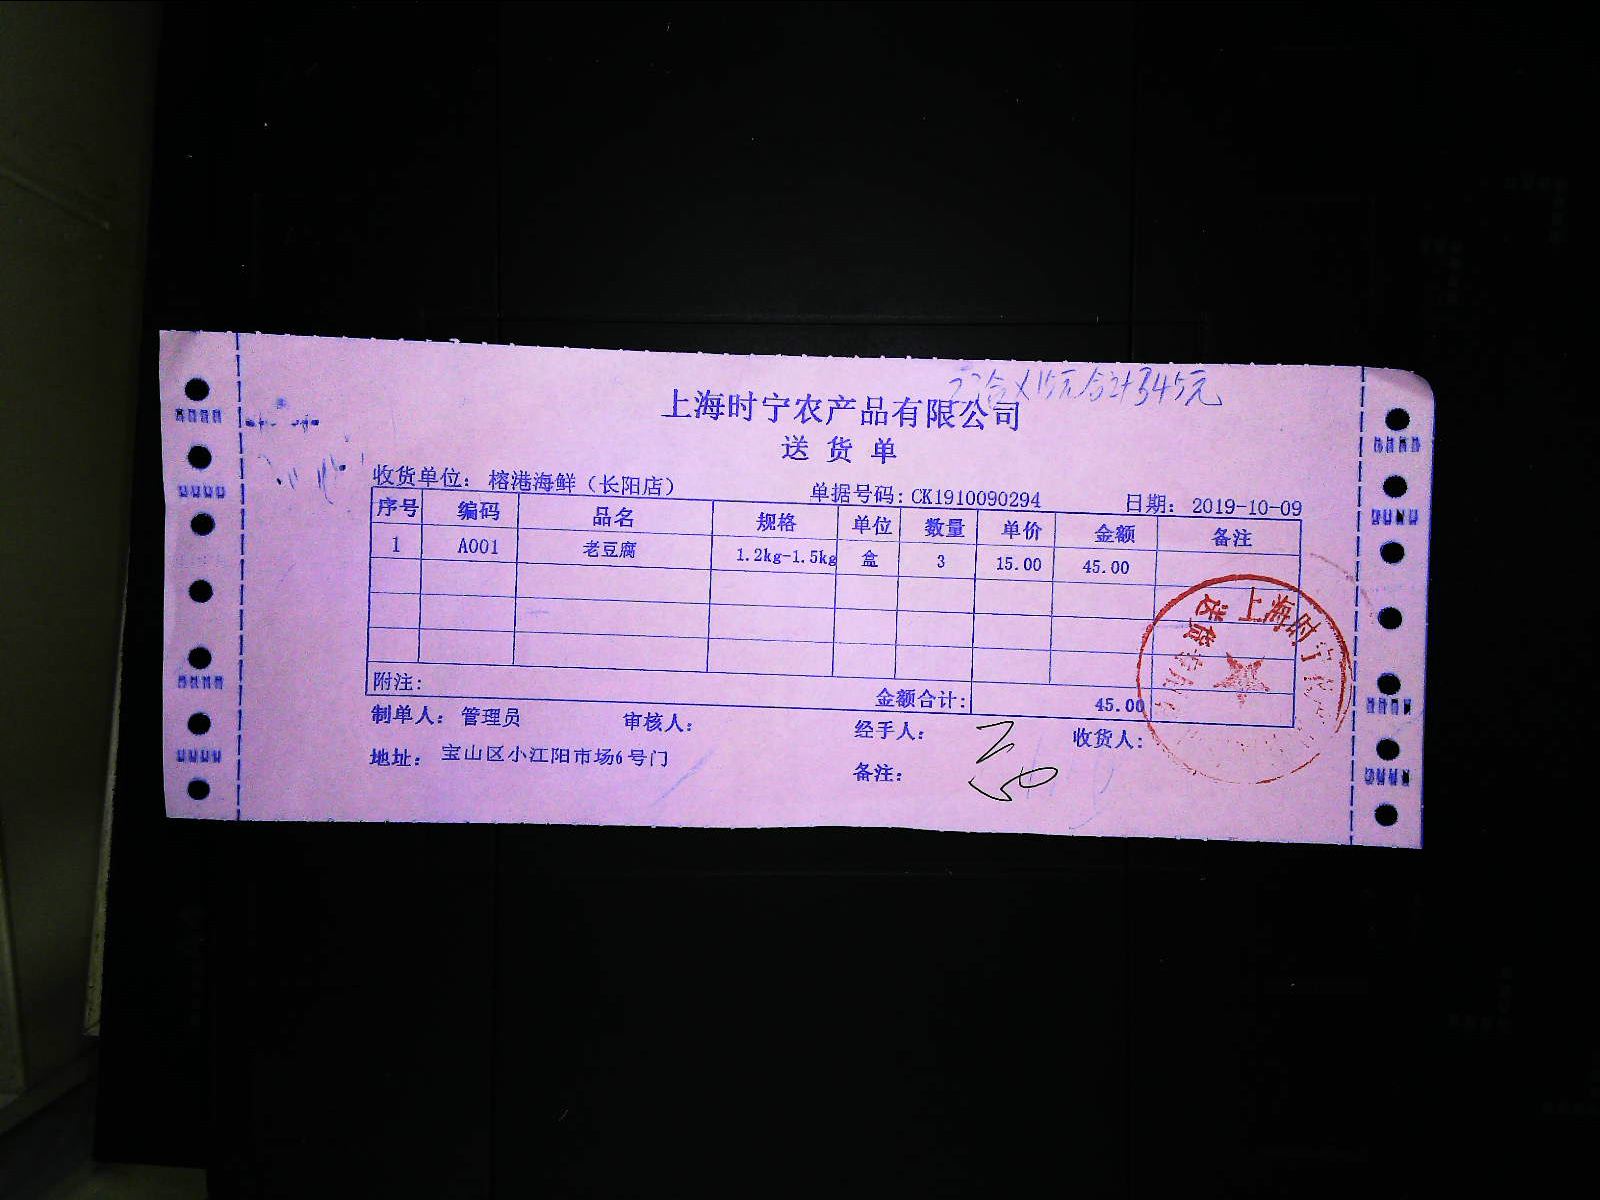 上海时宁农产品有限公司
送货单
收货单位：榕港海鲜（长阳店） 单据号码：CK1910090294 日期：2019-10-09
序号 编码 品名 规格 单位 数量 单价 金额 备注
1 A001 老豆腐 1.2kg-1.5kg 盒 3 15.00 45.00
附注： 金额合计： 45.00
制单人：管理员 审核人： 经手人： 收货人：
地址：宝山区小江阳市场6号门 备注：
上海时宁
送货